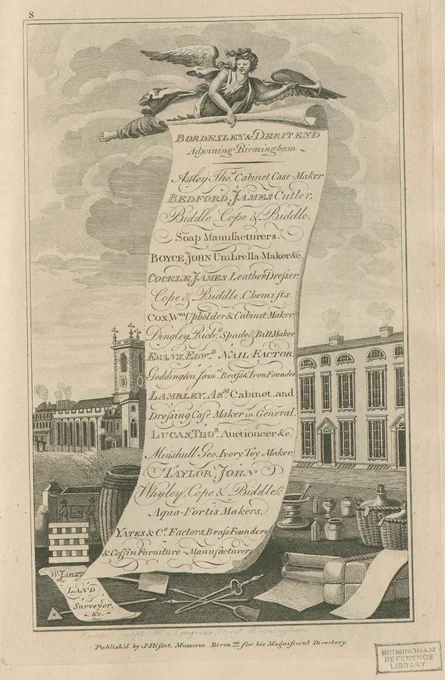 S
BORDESLEY & DERITEND
Adjoining Birmingham
Astley Thos. Cabinet Case Maker
BEDFORD, JAMES Cutler,
Biddle, Cope & Biddle,
Soap Manufacturers.
BOYCE JOHN Umbrella Maker &c.
COCKLE, JAMES Leather Dresser,
Cope & Biddle, Chemists.
COX, Wm. Upholder & Cabinet Maker.
Dingley, Richd. Spade & Bill Maker
EVANS, EDWd. NAIL FACTOR
Goddington Saml. Brass & Iron Founder
LAMBLEY, ABm. Cabinet, and
Dressing Case Maker in General.
LUCAS, THOs. Auctioneer &c.
Menshull Geo. Ivory Toy Maker.
TAYLOR, JOHN
Whyley, Cope & Biddle,
Aqua-Fortis Makers,
YATES & Co. Factors, Brass Founders
& Coffin Furniture Manufacturers
W. James
LAND
Surveyor,
&c.
Publish'd by J. Bisset, Museum Birmm. for his Magnificent Directory.
BIRMINGHAM
REFERENCE
LIBRARY